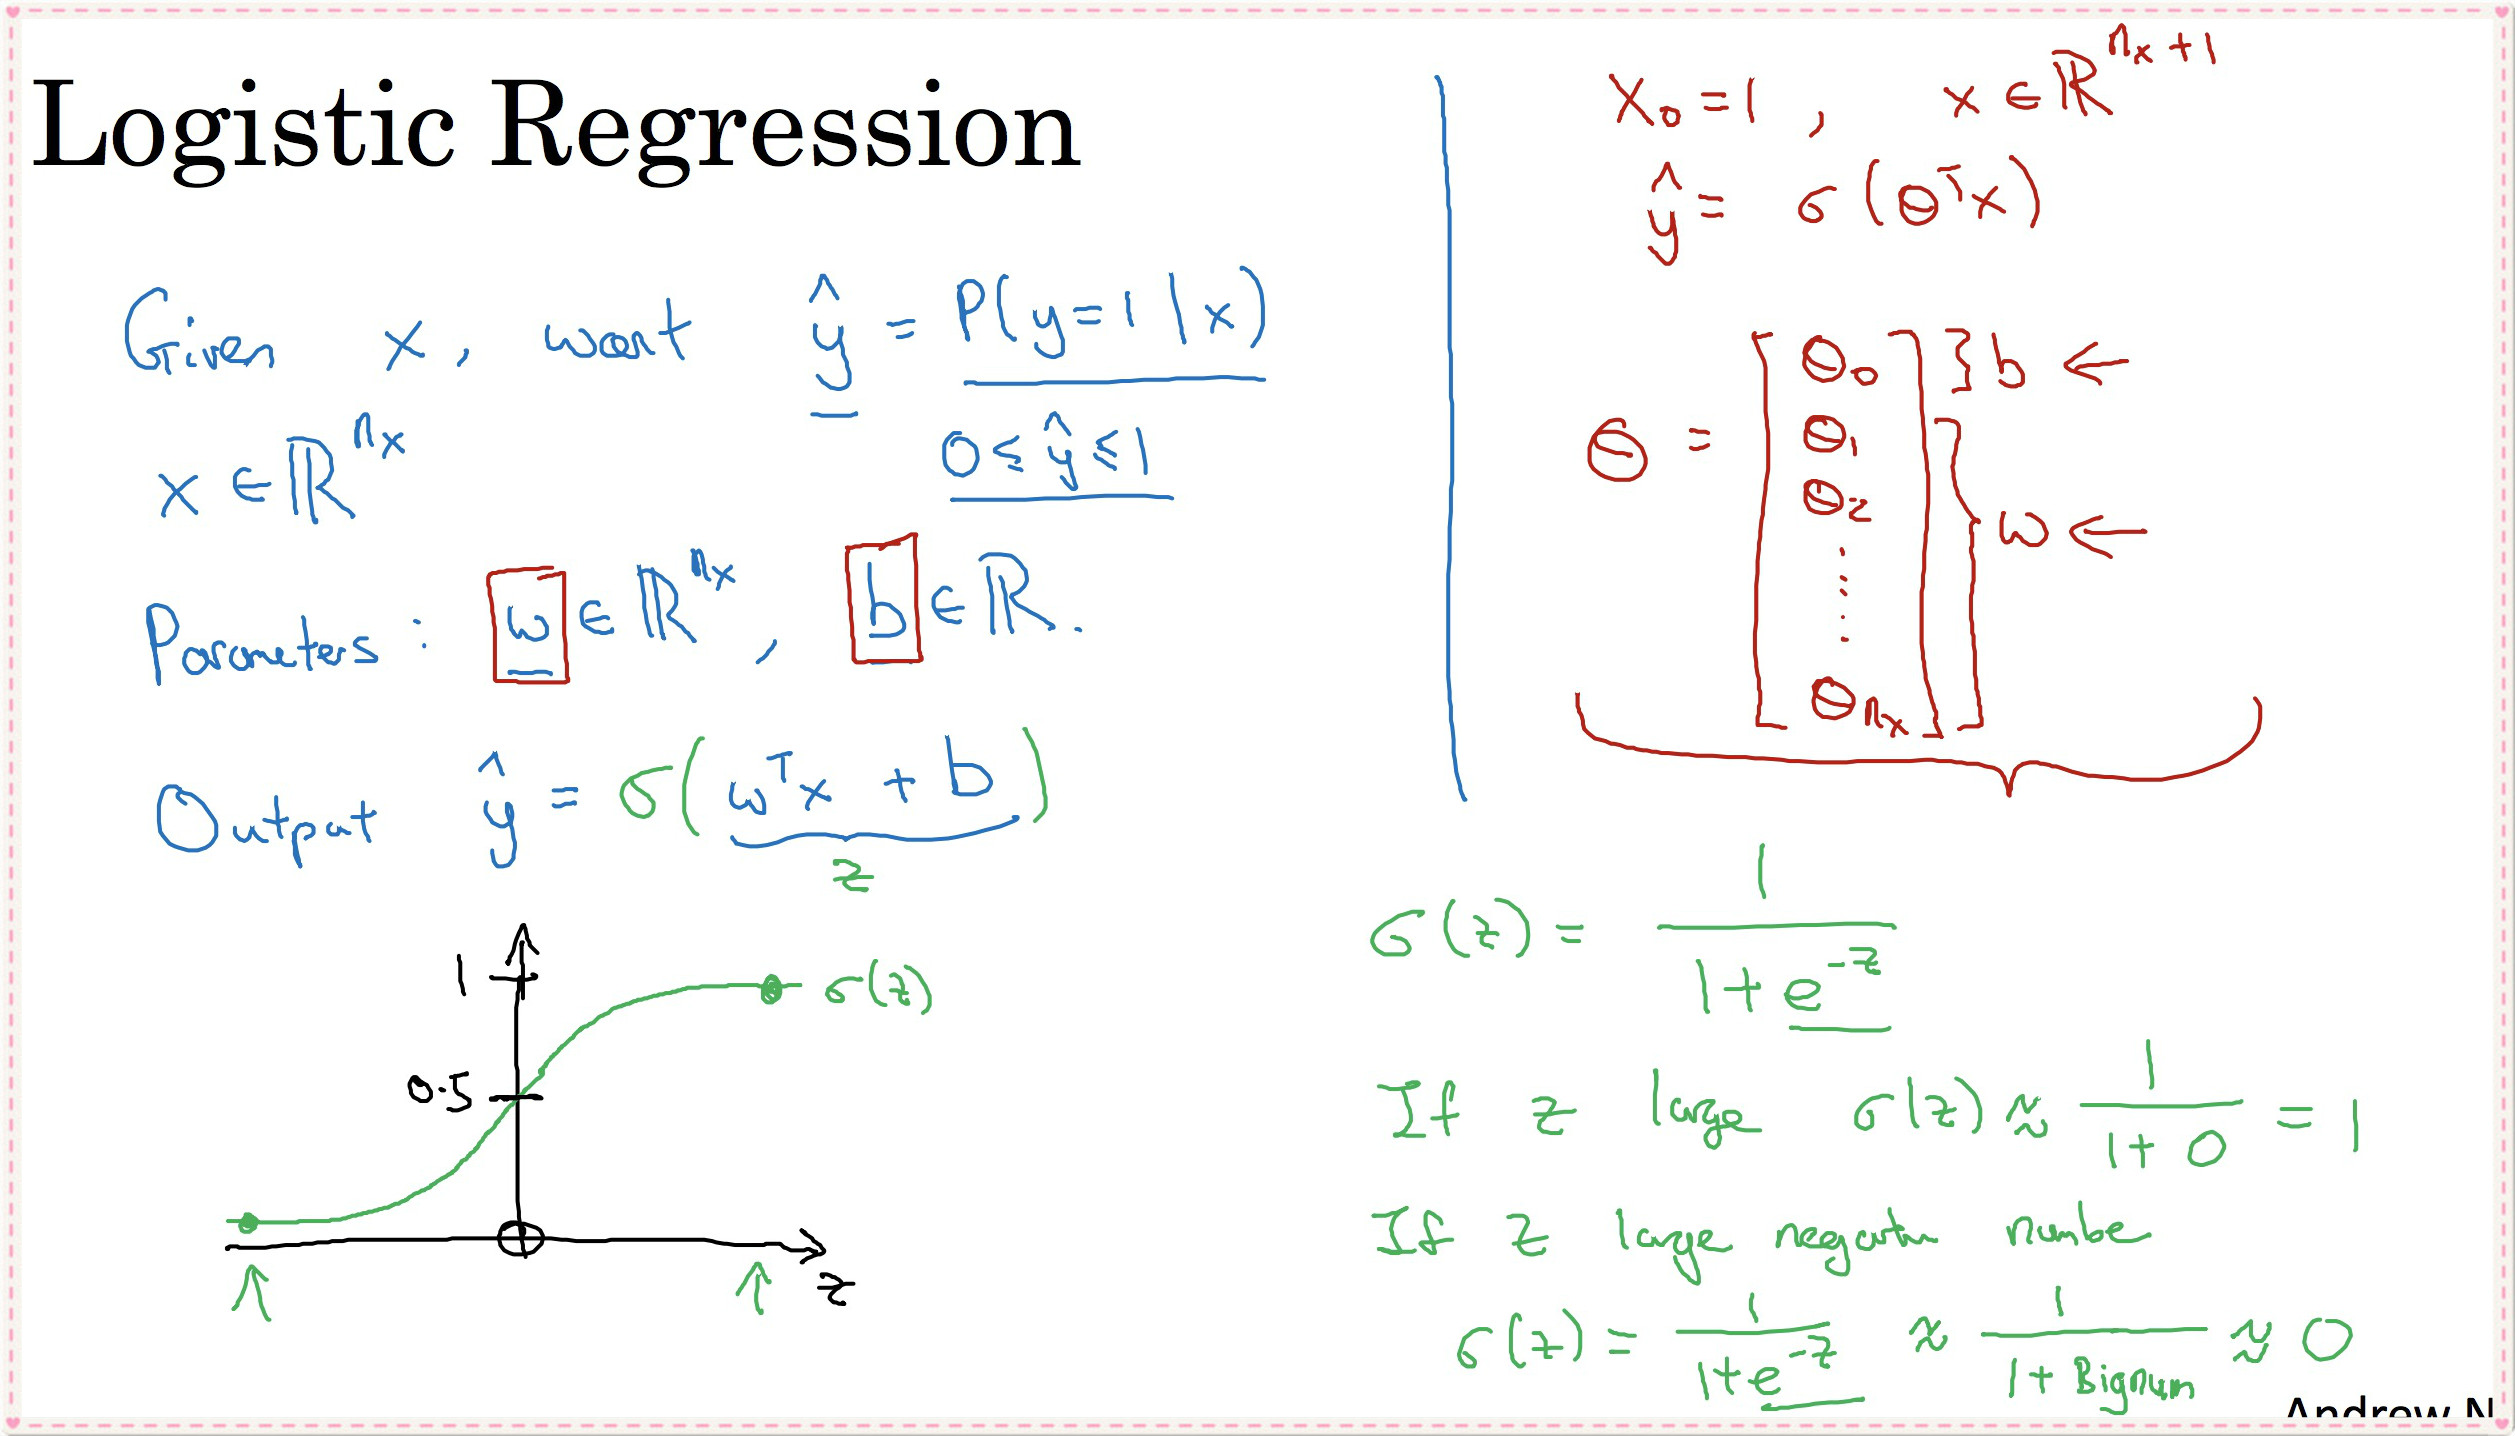 Logistic Regression
Given x, want ŷ = P(y=1|x)
0 ≤ ŷ ≤ 1
x ∈ ℝ^{n_x}
Parameters: w ∈ ℝ^{n_x}, b ∈ ℝ.
Output ŷ = σ(w^T x + b)
z
1
σ(z)
0.5
z
x_0 = 1, x ∈ ℝ^{n_x+1}
ŷ = σ(θ^T x)
θ = [θ_0 θ_1 θ_2 ⋮ θ_{n_x}]
} b ←
} w ←
σ(z) = 1/(1 + e^{-z})
If z large σ(z) ≈ 1/(1+0) = 1
If z large negative number
σ(z) = 1/(1+e^{-z}) ≈ 1/(1+Bignum) ≈ 0
Andrew N